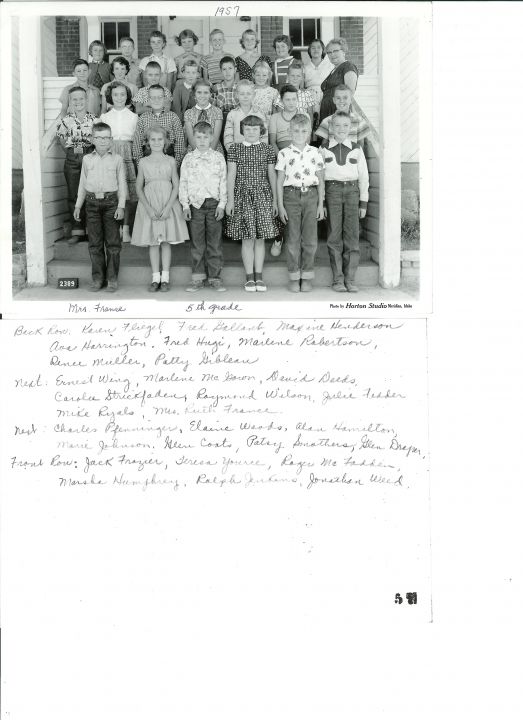 1957
2389
Mrs. France 5th grade Photo by Horton Studio Meridian, Idaho
Back Row: Karen Fliegel, Fred Gallant, Maxine Henderson
Ava Harrington, Fred Hugi, Marlene Robertson,
Renee Mueller, Patty Gibleau
Next: Ernest Wing, Marlene McGown, David Deeds,
Carolee Strickfaden, Raymond Wilson, Julie Fedder
Mike Ryals, Mrs. Ruth France.
Next: Charles Pfenninger, Elaine Woods, Alan Hamilton,
Marie Johnson, Glen Coats, Patsy Smothers, Glen Draper,
Front Row: Jack Frazier, Teresa Yource, Roger McFadden,
Marsha Humphrey, Ralph Jenkins, Jonathan Weed.
5